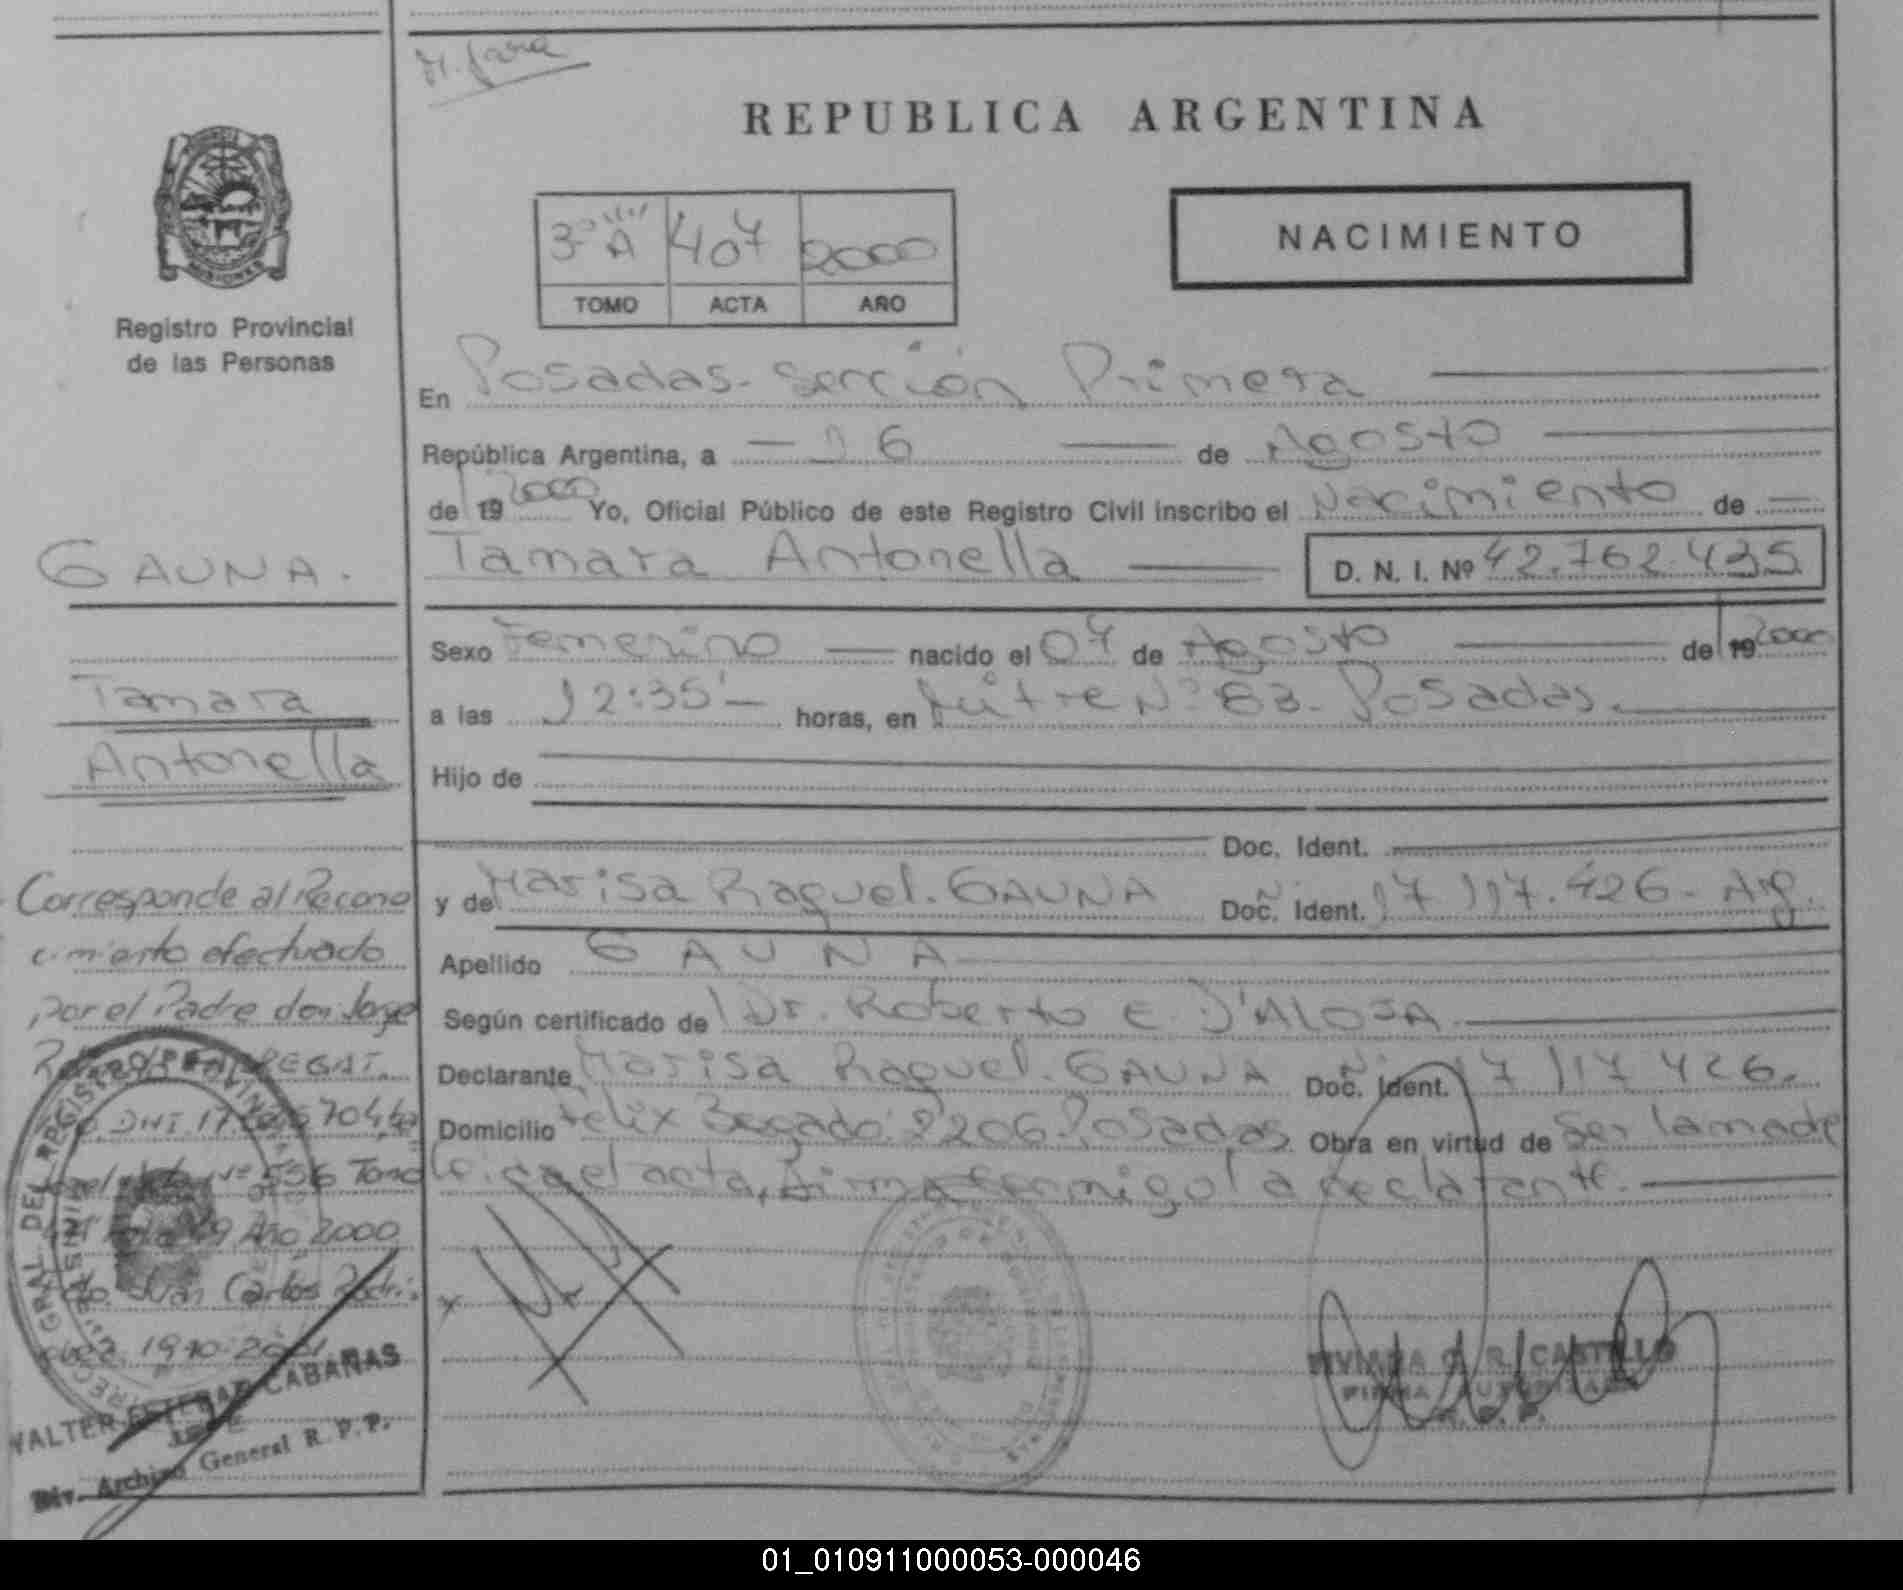 M. Jara
REPUBLICA ARGENTINA
3º A 407 2000
TOMO ACTA AÑO
NACIMIENTO
Registro Provincial
de las Personas
En Posadas- Sección Primera
República Argentina, a 16 de Agosto
de 19 2000 Yo, Oficial Público de este Registro Civil inscribo el Nacimiento de
Tamara Antonella D. N. I. Nº 42.762.435
Sexo Femenino nacido el 07 de Agosto de 19 2000
a las 12:35'- horas, en Mitre Nº 83- Posadas.
Hijo de
Doc. Ident.
y de Marisa Raquel. GAUNA Doc. Ident. 17 117.426- Arg.
Apellido GAUNA
Según certificado de Dr. Roberto E. D'ALOJA
Declarante Marisa Raquel. GAUNA Doc. Ident. 17 117 426.
Domicilio Felix 2206-Posadas Obra en virtud de Ser la madre
el acta, firma conmigo la declarante.
VIVIANA R. CASTILLO
FIRMA AUTORIZADA
R. P. P.
GAUNA.
Tamara
Antonella
Corresponde al Recono
cimiento efectuado
por el Padre don Jorge
DNI. 17.
Nº 556 Tomo
Año 2000
Juan Carlos Rodri-
guez 19-10-2001
WALTER ESTEBAN CABAÑAS
JEFE
Div. Archivo General R. P. P.
01_010911000053-000046